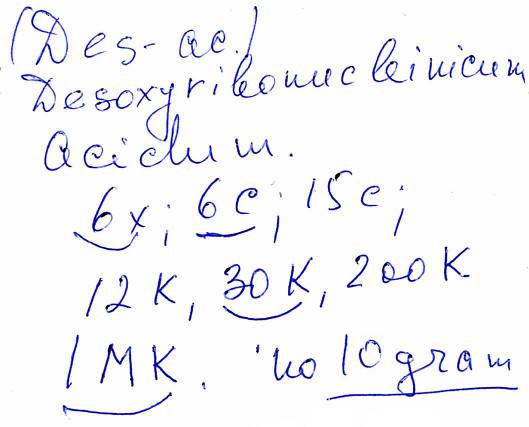 (Des-ac.)
Desoxyribonucleinicum
acidum.
6x; 6C; 15c;
12K, 30K, 200K
1MK. по 10 gram